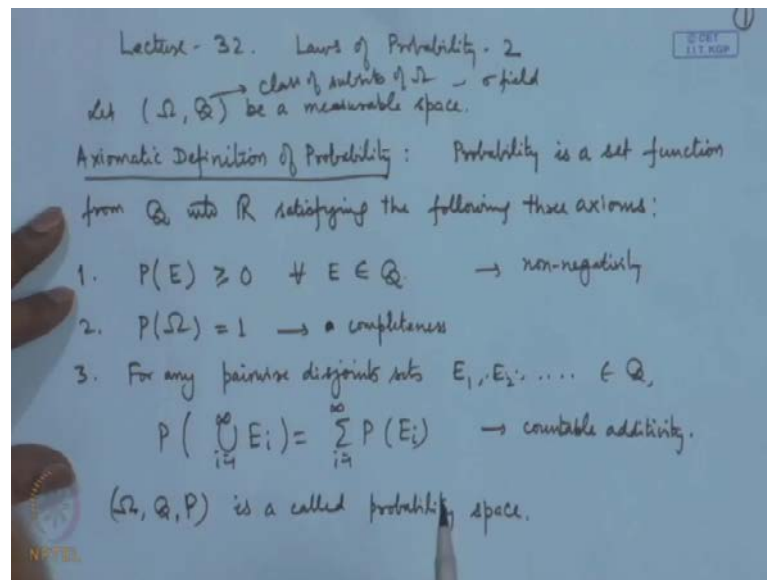 1
Lecture - 32. Laws of Probability - 2
© CET
I.I.T. KGP
→ class of subsets of Ω - σ field
Let (Ω, Q) be a measurable space.
Axiomatic Definition of Probability : Probability is a set function
from Q into R satisfying the following three axioms:
1. P(E) ≥ 0 ∀ E ∈ Q. → non-negativity
2. P(Ω) = 1 → completeness
3. For any pairwise disjoints sets E₁, E₂, .... ∈ Q,
P( ∞∪i=1 Ei) = ∞∑i=1 P(Ei) → countable additivity.
(Ω, Q, P) is a called probability space.
NPTEL